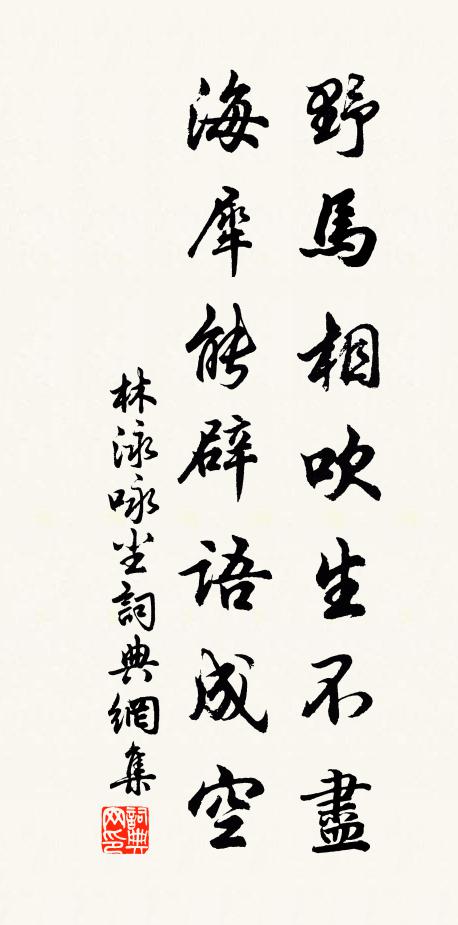 野馬相吹生不盡
海犀能辟語成空
林泳咏尘詞典網集
詞典網印